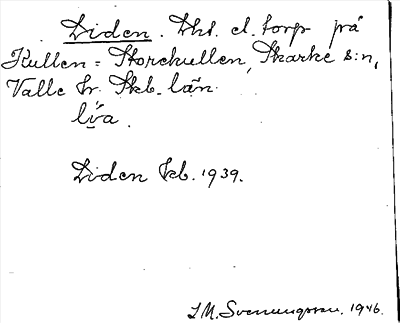 Liden. Lht. el. torp på
Kullen = Storekullen, Skarke s:n,
Valle hr. Skb. län.
li̇̄a.
Liden kb. 1939.
I.M. Svenungsson. 1946.